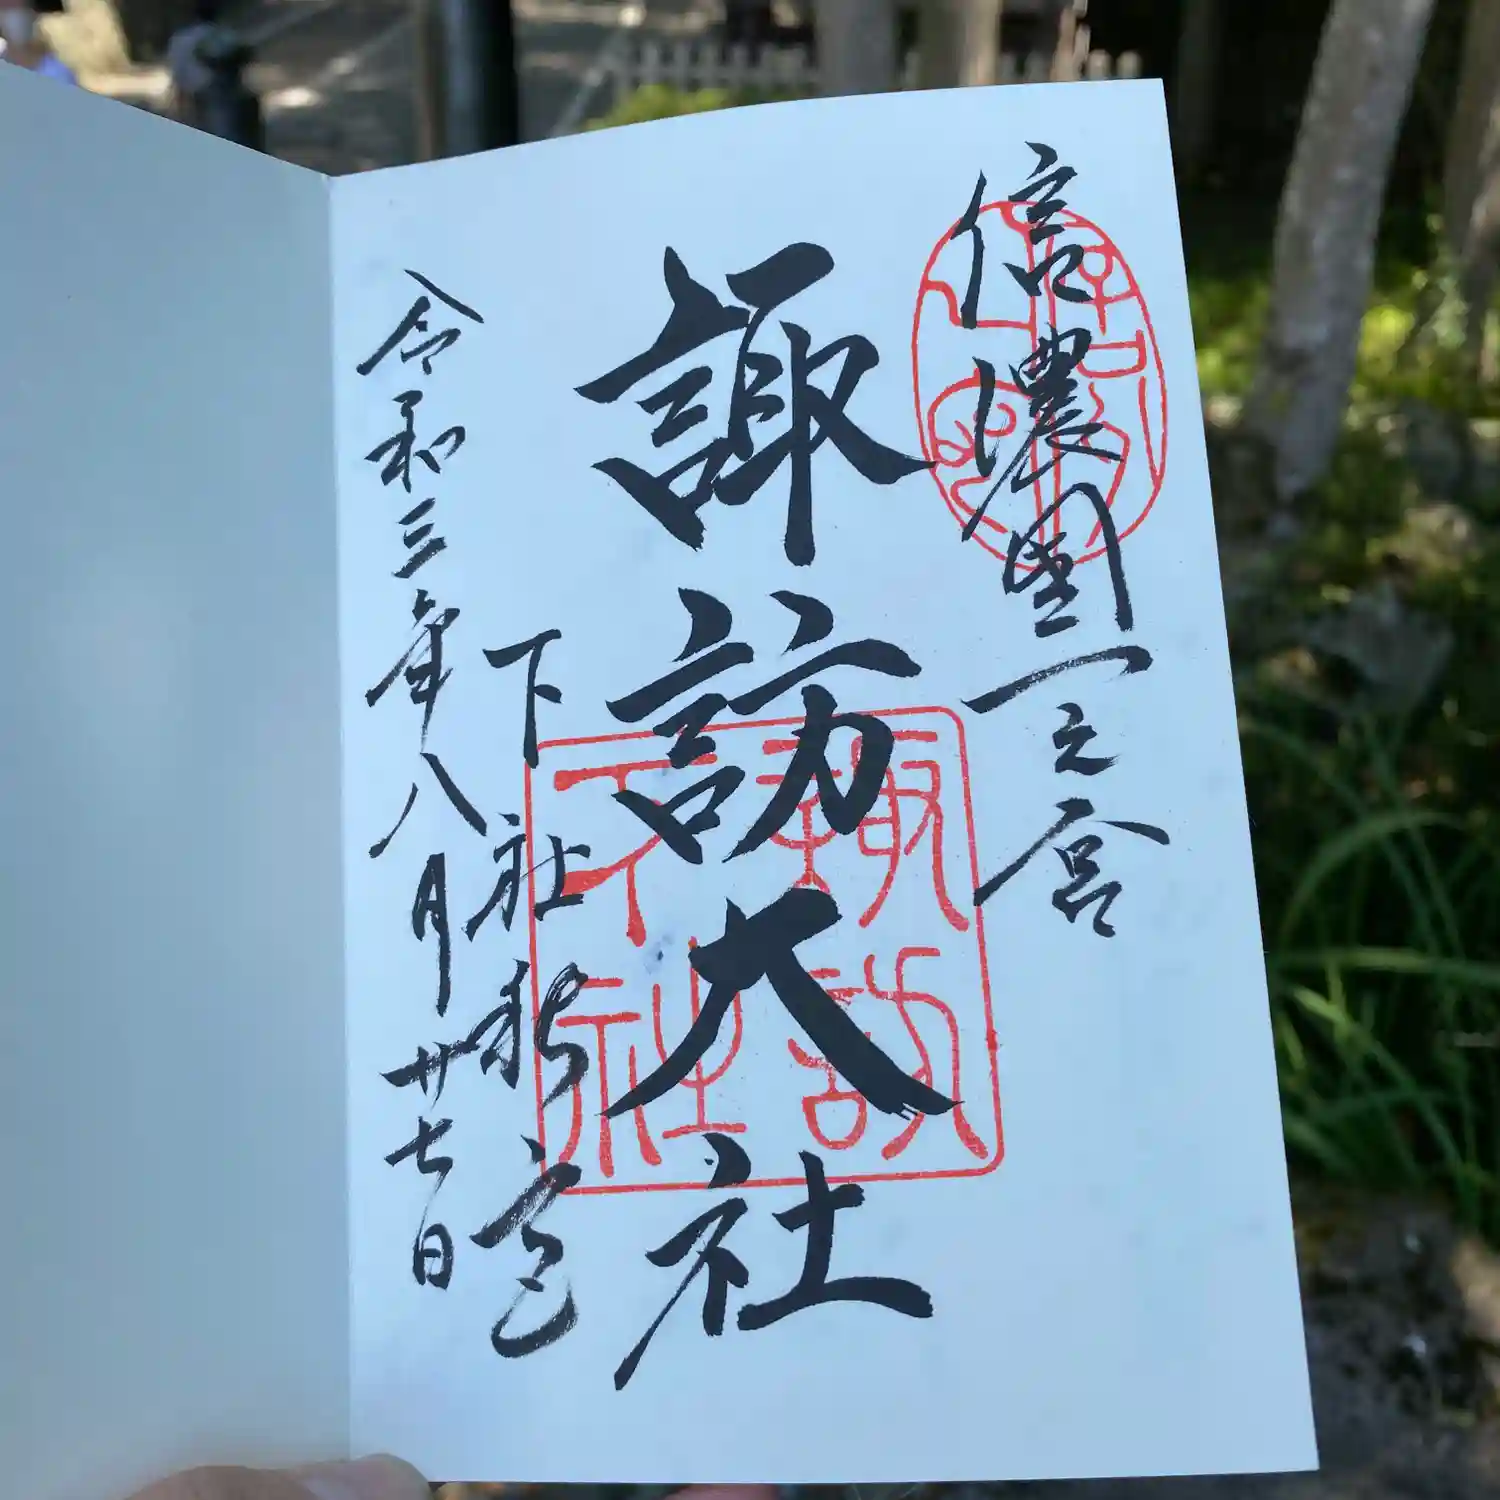 信濃國一之宮
諏訪大社
下社秋宮
令和三年八月廿七日
諏訪
下社